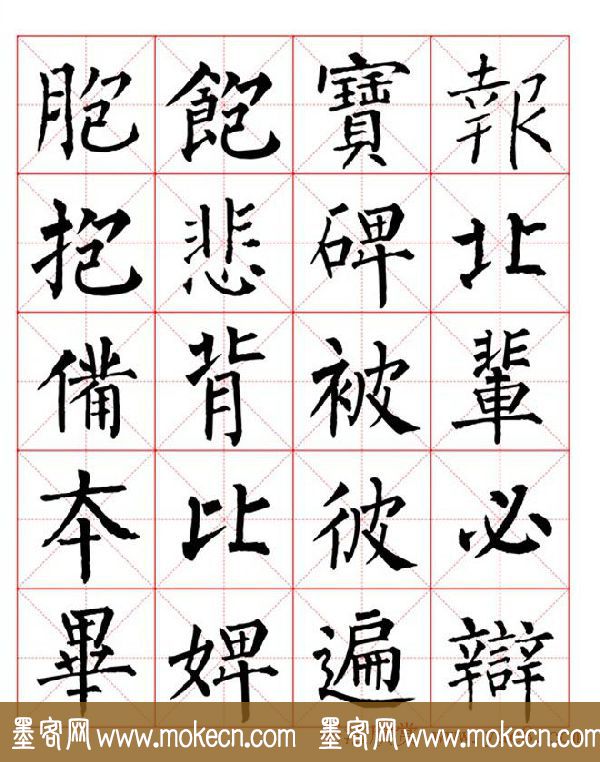 胞飽寶報
抱悲碑北
備背被輩
本比彼必
畢婢遍辯
墨客网 www.mokecn.com 墨客网 www.mokecn.com